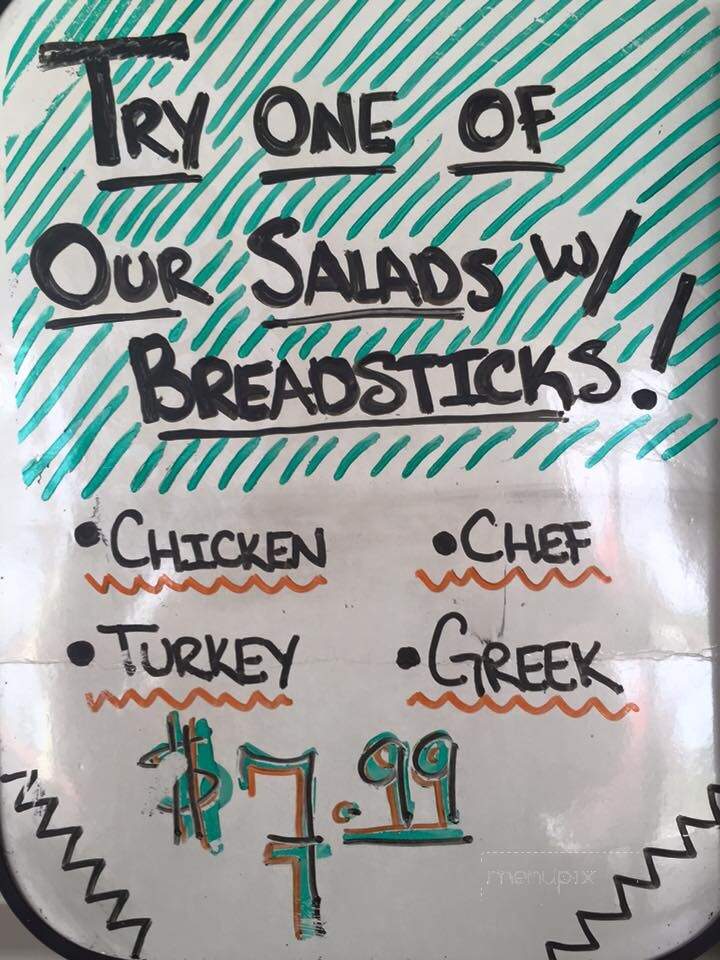 TRY ONE OF
OUR SALADS W/
BREADSTICKS!
• CHICKEN • CHEF
• TURKEY • GREEK
$7.99
menupix